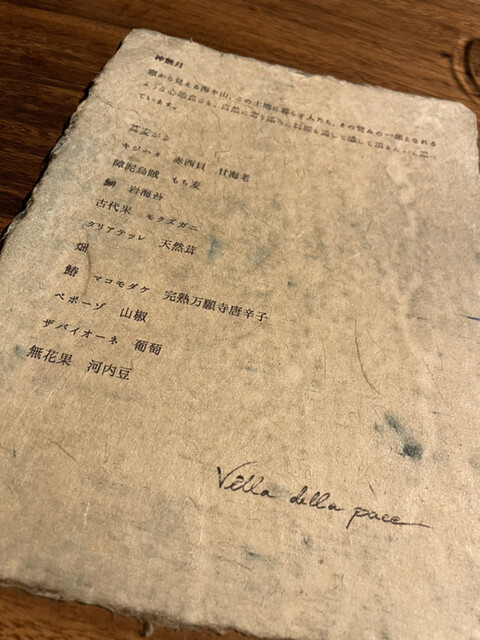 神無月
窓から見える海や山、この土地に暮らす人たち、その営みの一部となれる
ような心地良さを、自然に寄り添った料理を通して
ています。
キジハタ 赤西貝 甘海老
障泥烏賊 もち麦
鯛 岩海苔
古代米 モクズガニ
タリアテッレ 天然茸
畑
鰆 マコモダケ 完熟万願寺唐辛子
ペポーゾ 山椒
ザバイオーネ 葡萄
無花果 河内豆
Villa della pace